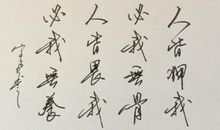 人皆狎我
必我無骨
人皆畏我
必我無養